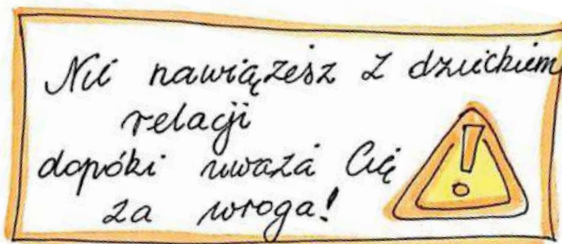 Nie nawiążesz z dzieckiem
relacji
dopóki uważa Cię
za wroga!